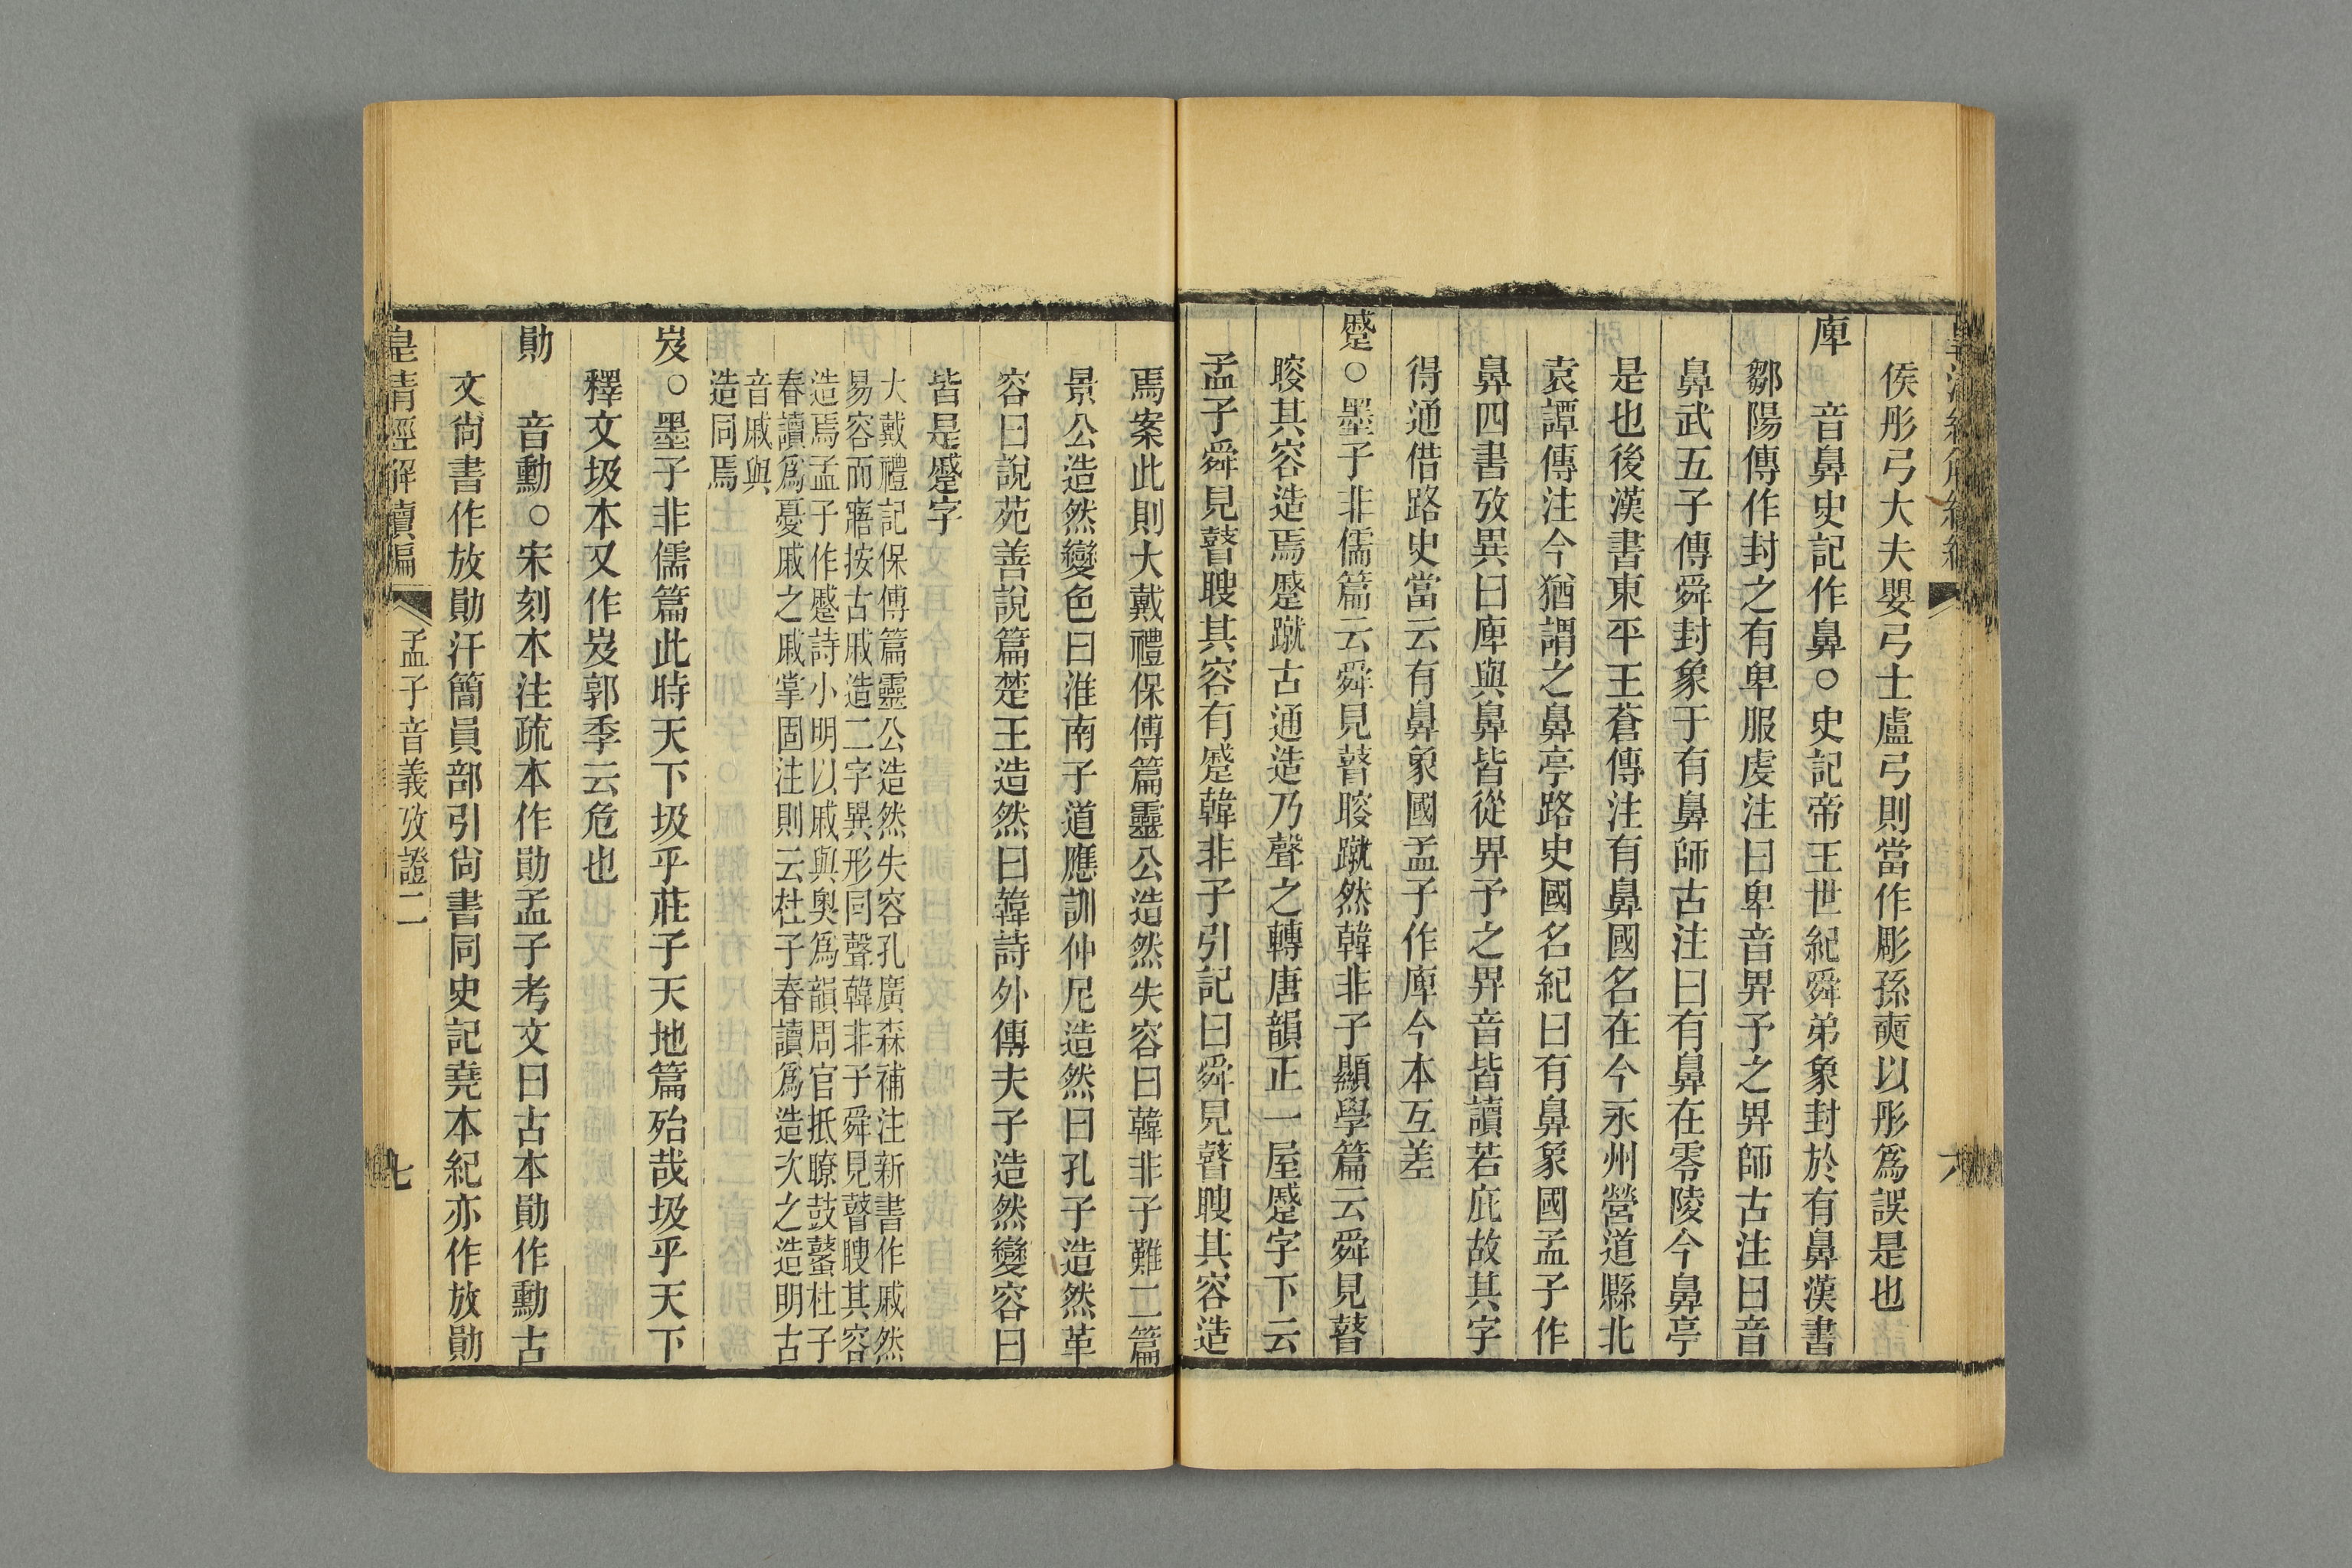 侯彤弓大夫嬰弓士盧弓則當作彫孫奭以彤爲誤是也
庳　音鼻史記作鼻○史記帝王世紀舜弟象封於有鼻漢書
鄒陽傳作封之有卑服虔注曰卑音畀予之畀師古注曰音
鼻武五子傳舜封象于有鼻師古注曰有鼻在零陵今鼻亭
是也後漢書東平王蒼傳注有鼻國名在今永州營道縣北
袁譚傳注今猶謂之鼻亭路史國名紀曰有鼻象國孟子作
鼻四書攷異曰庳與鼻皆從畀予之畀音皆讀若庇故其字
得通借路史當云有鼻象國孟子作庳今本互差
蹙○墨子非儒篇云舜見瞽䏂蹴然韓非子顯學篇云舜見瞽
䏂其容造焉蹙蹴古通造乃聲之轉唐韻正一屋蹙字下云
孟子舜見瞽瞍其容有蹙韓非子引記曰舜見瞽瞍其容造
焉案此則大戴禮保傅篇靈公造然失容曰韓非子難二篇
景公造然變色曰淮南子道應訓仲尼造然曰孔子造然革
容曰說苑善說篇楚王造然曰韓詩外傳夫子造然變容曰
皆是蹙字
大戴禮記保傅篇靈公造然失容孔廣森補注新書作戚然
易容而寤按古戚造二字異形同聲韓非子舜見瞽瞍其容
造焉孟子作蹙詩小明以戚與奧爲韻周官抵瞭鼓鼜杜子
春讀爲憂戚之戚掌固注則云杜子春讀爲造次之造明古
音戚與
造同焉
岌○墨子非儒篇此時天下圾乎莊子天地篇殆哉圾乎天下
釋文圾本又作岌郭季云危也
勛　音勳○宋刻本注疏本作勛孟子考文曰古本勛作勳古
文尙書作放勛汗簡員部引尙書同史記堯本紀亦作放勛
皇清經解續編　孟子音義攷證二　七